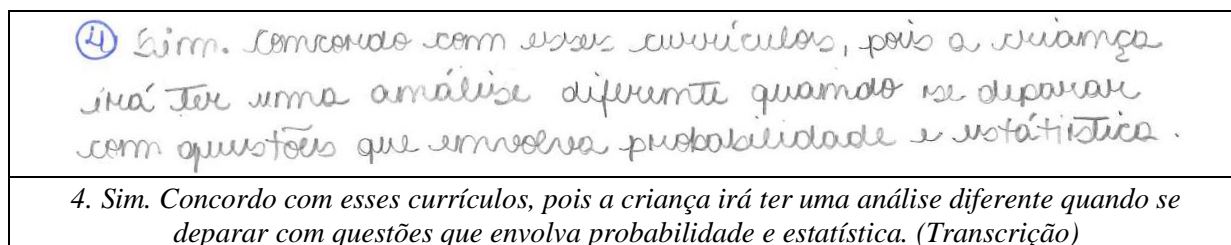 4 Sim. Concordo com esses currículos, pois a criança
irá ter uma análise diferente quando se deparar
com questões que envolva probabilidade e estátistica.
4. Sim. Concordo com esses currículos, pois a criança irá ter uma análise diferente quando se
deparar com questões que envolva probabilidade e estatística. (Transcrição)